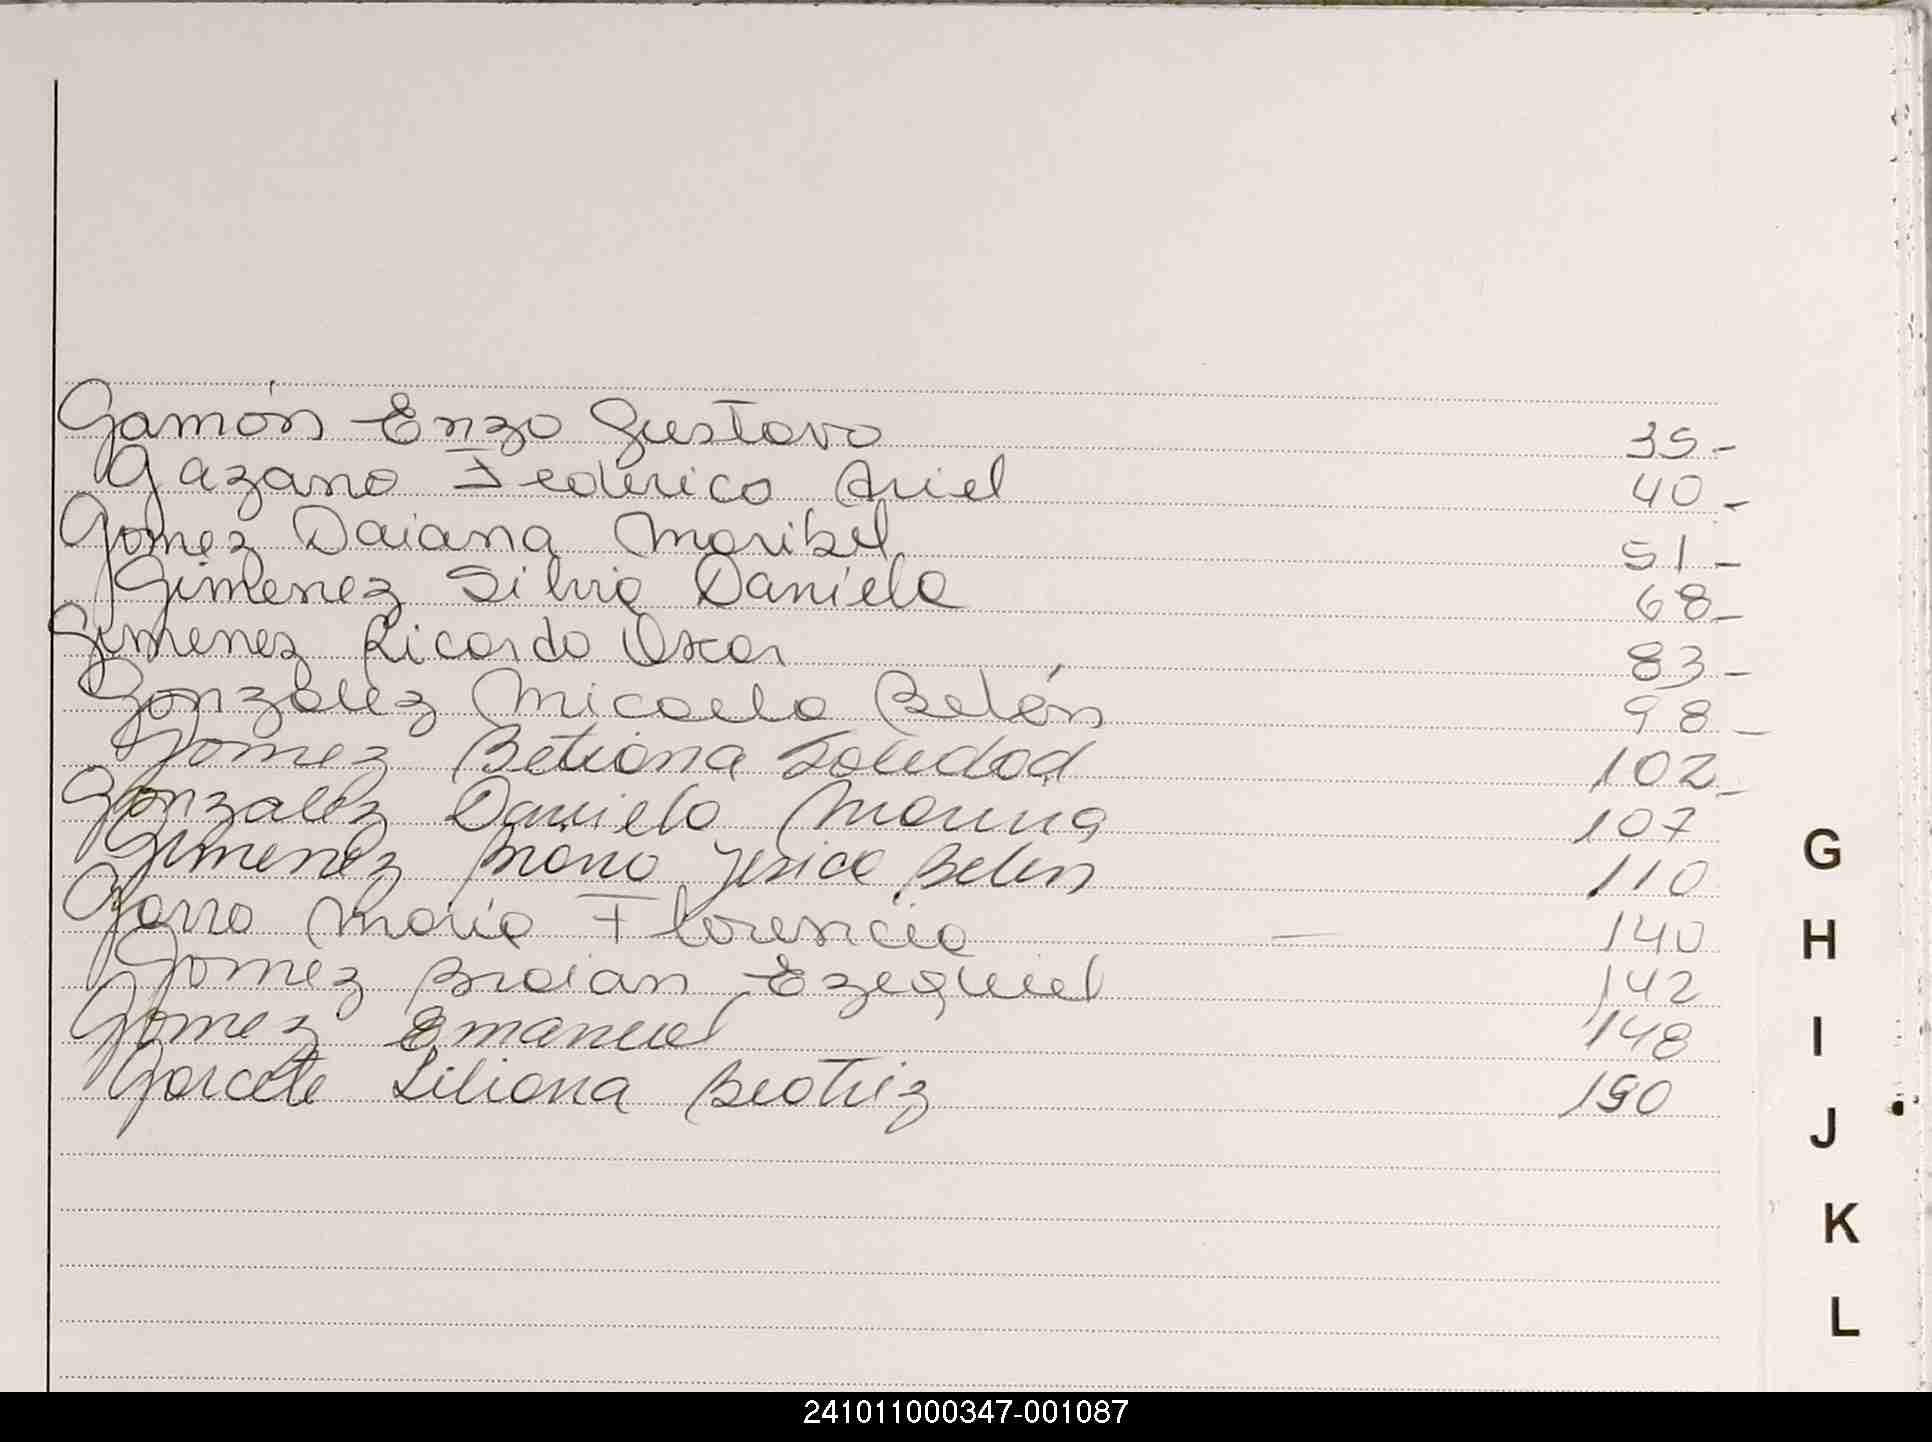 Gamón Enzo Gustavo 35 -
Gazano Federico Ariel 40 -
Gomez Daiana Maribel 51 -
Gimenez Silvia Daniela 68 -
Gimenez Ricardo Oscar 83 -
Gonzalez Micaela Belén 98 -
Gomez Betiana Soledad 102 -
Gonzalez Daniela Marina 107
Gimenez Maria Yesica Belen 110
Garro Maria Florencia — 140
Gomez Braian Ezequiel 142
Gomez Emanuel 148
Garcete Liliana Beatriz 190
G
H
I
J
K
L
241011000347-001087